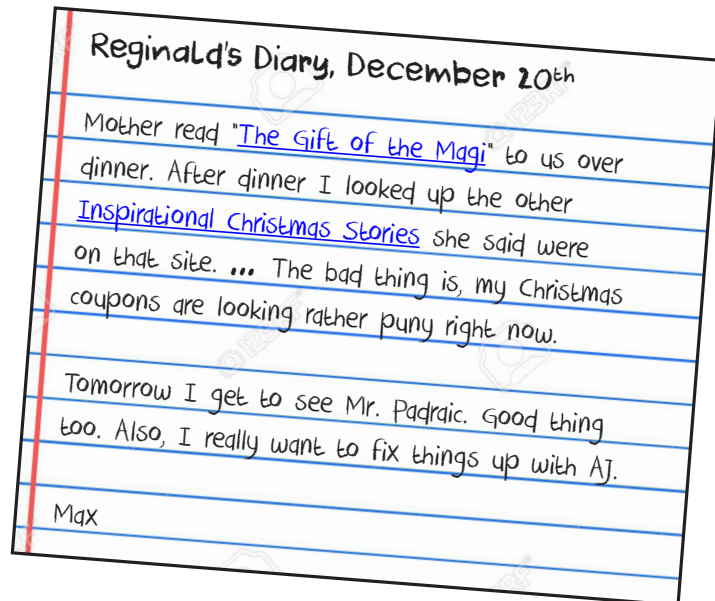 Reginald's Diary, December 20th
Mother read "The Gift of the Magi" to us over
dinner. After dinner I looked up the other
Inspirational Christmas Stories she said were
on that site. ... The bad thing is, my Christmas
coupons are looking rather puny right now.
Tomorrow I get to see Mr. Padraic. Good thing
too. Also, I really want to fix things up with AJ.
Max